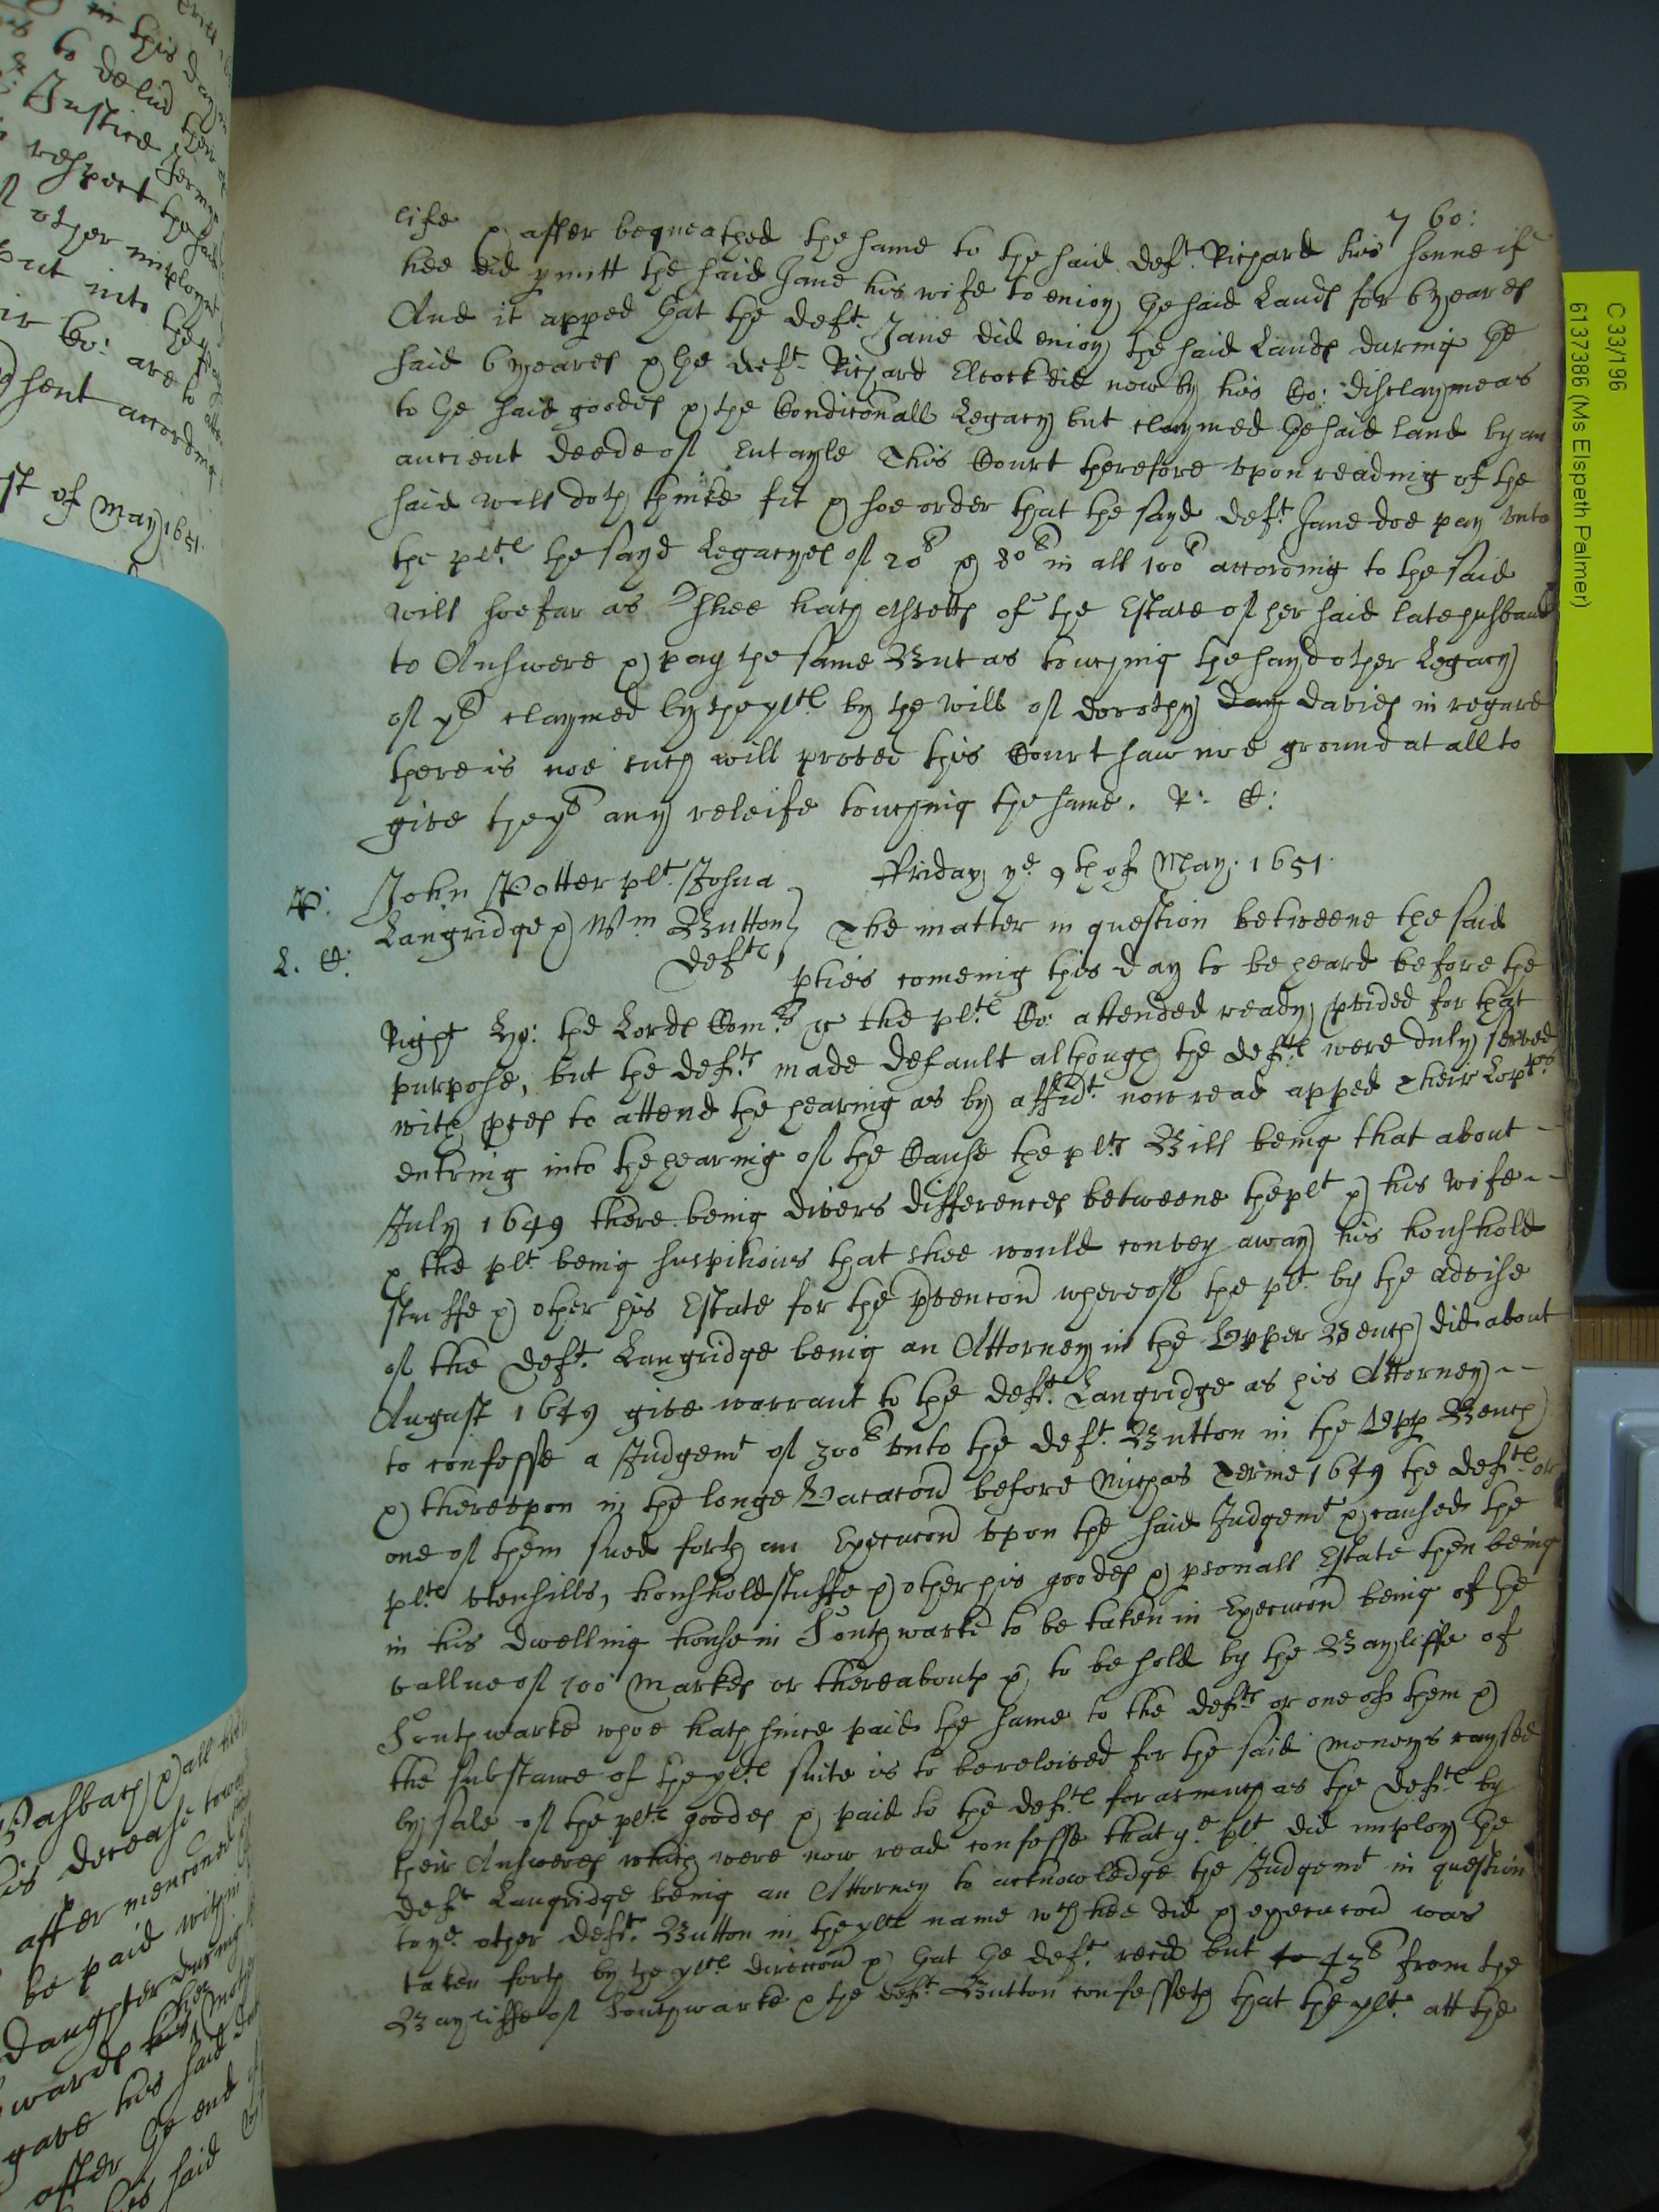 760:
life & after bequeathed the same to the said deft. Richard his sonne if
hee did pmitt the said Jane his wife to enioy the said Lands for 6 yeares
And it apped that the deft. Jane did enioy the said Lands during the
said 6 yeares & the deft Richard Elcock did now by his Co: disclayme as
to the said goodes & the Condiconall Legacy but claymed the said land by an
ancient deede of Entayle This Court therefore vpon reading of the
said will doth thinke fit & soe order that the sayd deft Jane doe pay vnto
the plts the sayd Legacyes of 20l & 80l in all 100l according to the said
will soe far as shee hath Assetts of the Estate of her said late husband
to Answere & pay the same But as touching the sayd other Legacy
of xl claymed by the plts by the will of dorothy day davies in regard
there is noe such will proved this Court saw noe ground at all to
give they any releife touching the same. R: C:
John Potter plt Joshua
Langridge & Wm Button
Defts
L. C:
Friday ye 9th of May: 1651
The matter in question betweene the said
pties comeing this day to be heard before the
Right Ho: the Lords Comrs &c the plts Co: attended ready pvided for that
purpose, but the defts made default although the defts were duly served
with pces to attend the hearing as by affidt now read apped Their Lopps
entring into the hearing of the Cause the plts Bill being that about
July 1649 there being divers differences betweene the plt & his wife
& the plt being suspitious that shee would convey away his houshold
stuffe & other his Estate for the pvencon whereof the plt by the advise
of the deft. Langridge being an Attorney in the Vpper Bench did about
August 1649 give warrant to the deft. Langridge as his Attorney
to confesse a Judgemt of 300l vnto the deft. Button in the Vpp Bench
& therevpon in the longe Vacacon before Michas Terme 1649 the defts or
one of them sued forth an Execucon vpon the said Judgemt & caused the
plts vtensills, houshold stuffe & other his goodes & psonall Estate then being
in his dwelling house in Southwarke to be taken in Execucon being of the
vallue of 100 Markes or thereabouts & to be sold by the Bayliffe of
Southwarke whoe hath since paid the same to the defts or one of them &
the substance of the plts suite is to be releived for the said moneys raysed
by sale of the plts goodes & paid to the defts forasmuch as the defts by
their Answeres which were now read confesse that ye plt did imploy the
deft Langridge being an Attorney to acknowledge the Judgemt in question
to ye other deft. Button in the plts name wch hee did & execucon was
taken forth by the plts direccon & that the deft. recd but to 43l from the
Bayliffe of Southwarke & the deft Button confesseth that the plt. att the
C 33/196
6137386 (Ms Elspeth Palmer)